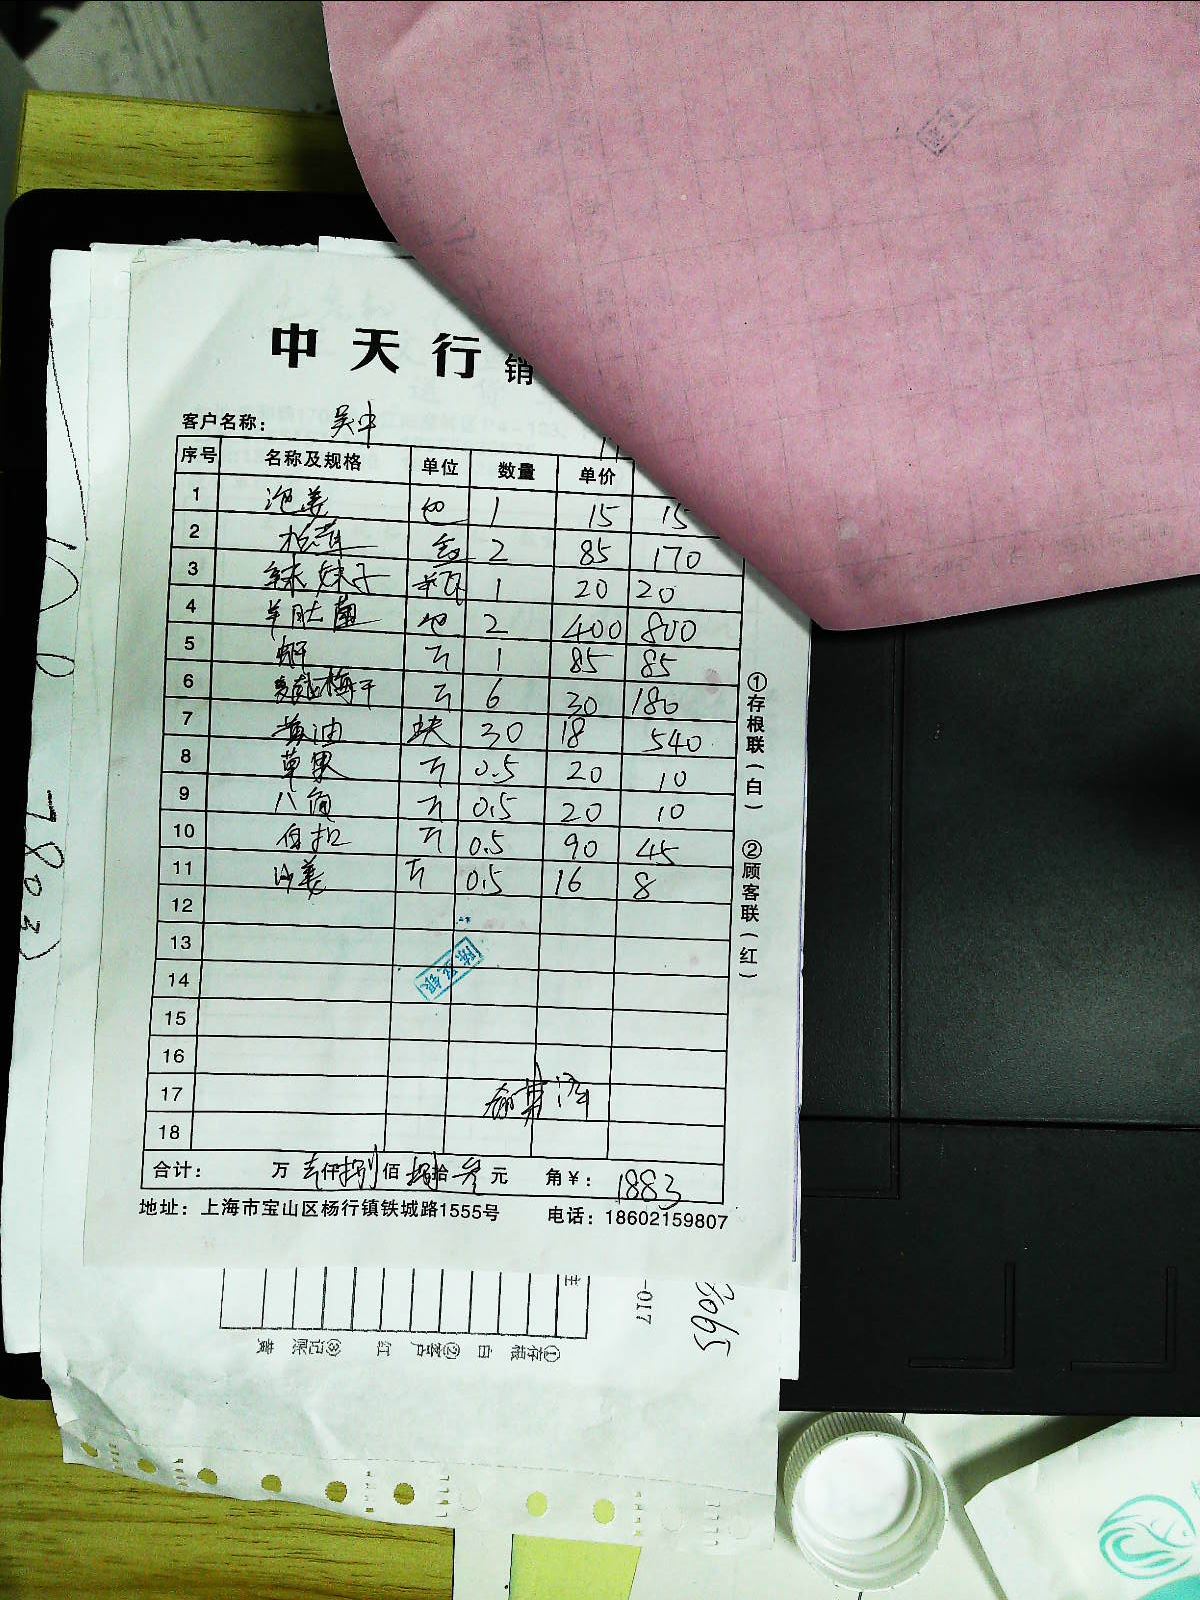 中天行 销
客户名称： 吴中
序号 名称及规格 单位 数量 单价
1 泡姜 包 1 15 15
2 松茸 盒 2 85 170
3 辣妹子 瓶 1 20 20
4 羊肚菌 包 2 400 800
5 虾干 斤 1 85 85
6 梅干 斤 6 30 180
7 黄油 块 30 18 540
8 草果 斤 0.5 20 10
9 八角 斤 0.5 20 10
10 白扣 斤 0.5 90 45
11 沙姜 斤 0.5 16 8
12
13
14
15
16
17
18
合计： 万 壱仟捌佰捌拾叁元 角￥： 1883
地址：上海市宝山区杨行镇铁城路1555号 电话：18602159807
①存根联（白） ②顾客联（红）
7803
-017
8065
①存根 白 ②客户 红 ③记账 黄